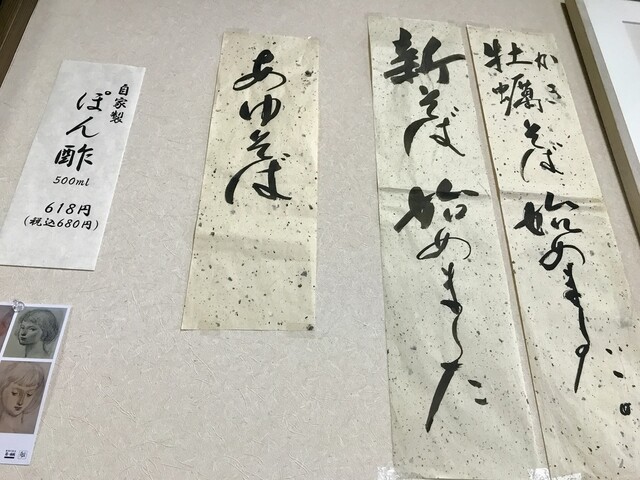 牡蠣そば始めました。
かき
新そば始めました
あゆそば
自家製
ぽん酢
500ml
618円
(税込680円)